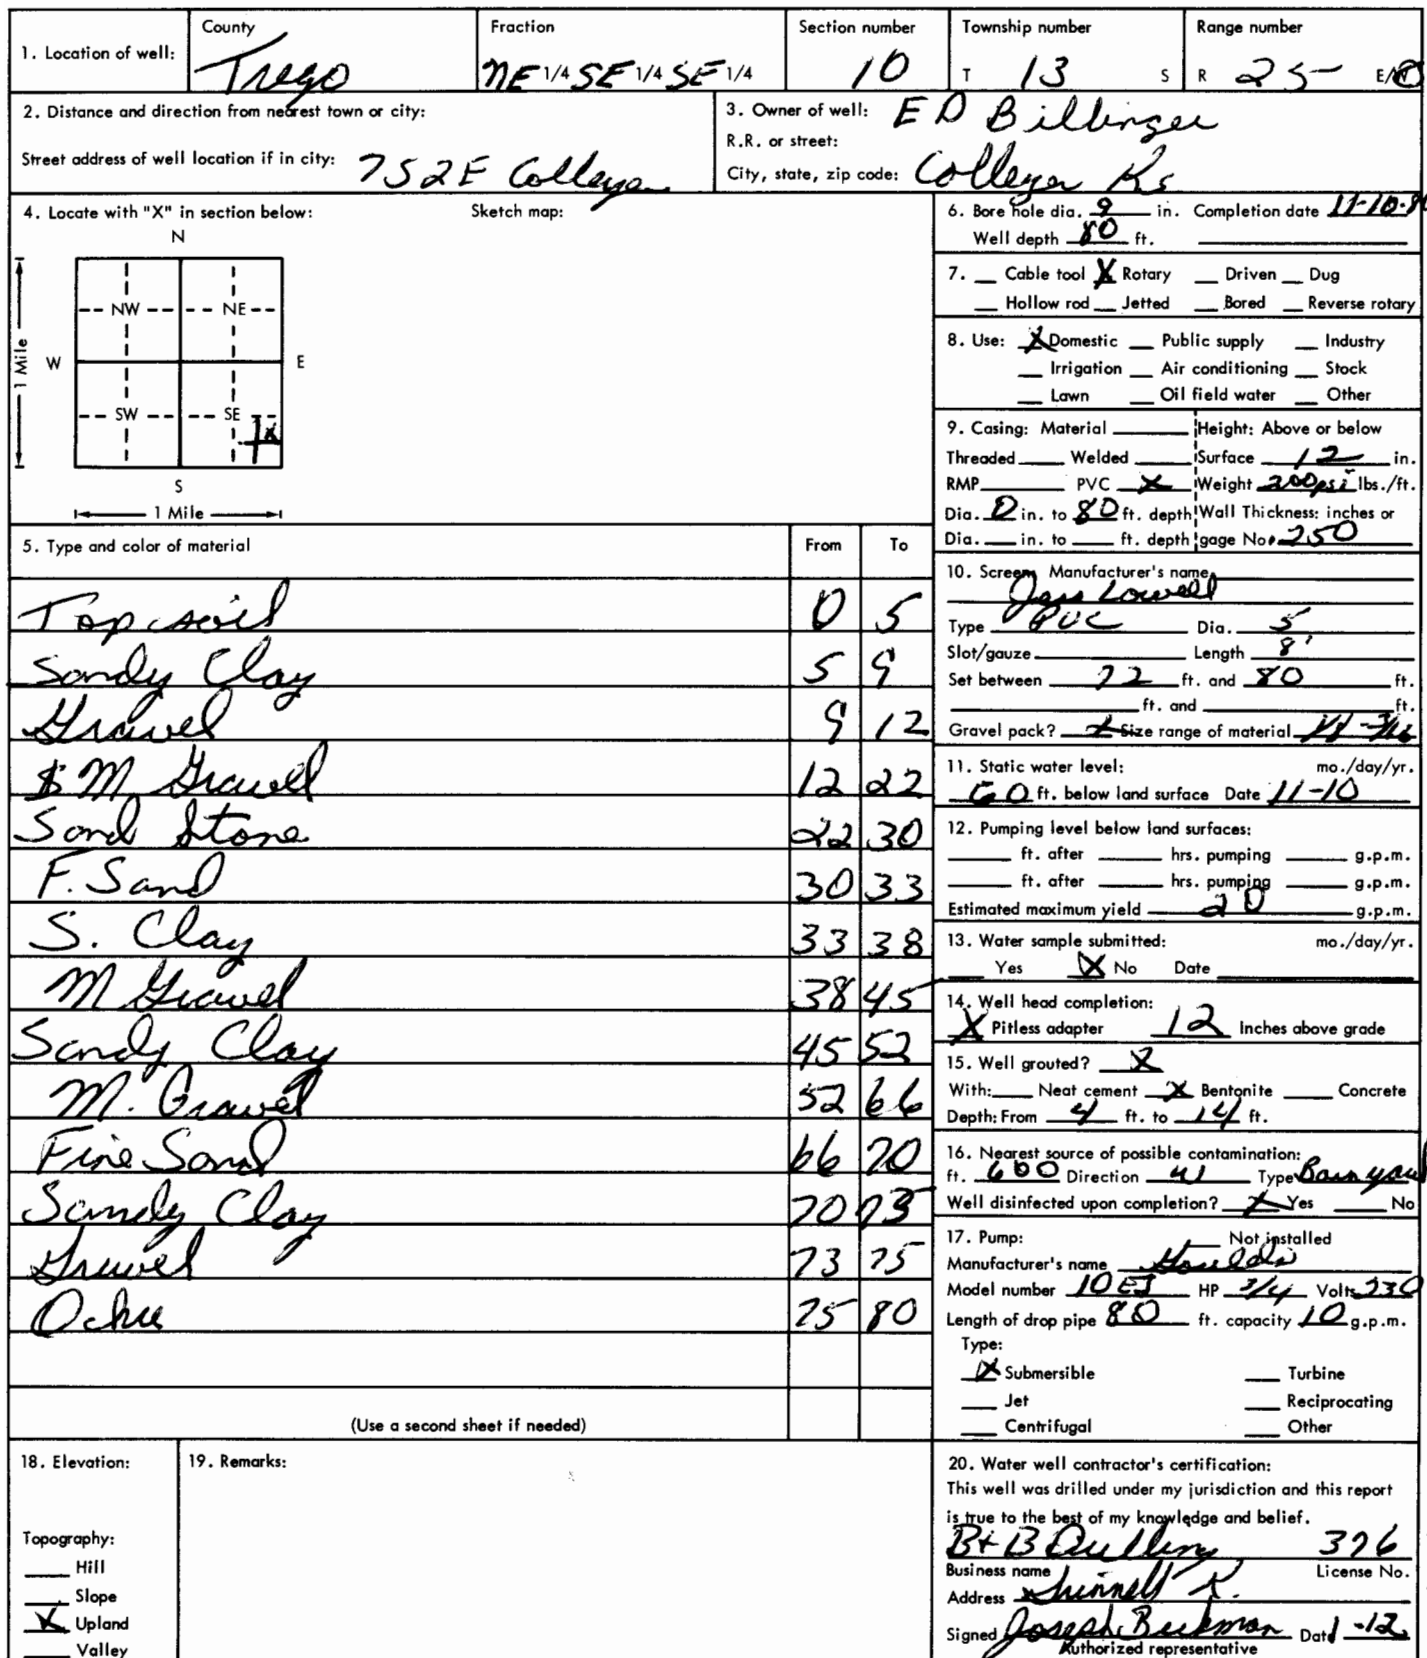 1. Location of well: County Trego Fraction NE 1/4 SE 1/4 SE 1/4 Section number 10 Township number T 13 S Range number R 25 E/W
2. Distance and direction from nearest town or city:
Street address of well location if in city: 752E Collyer
3. Owner of well: ED Billinger
R.R. or street:
City, state, zip code: Collyer Ks
4. Locate with "X" in section below: Sketch map:
N
NW NE
W E
1 Mile
SW SE X
S
1 Mile
5. Type and color of material From To
Top soil 0 5
Sandy Clay 5 9
Gravel 9 12
M Gravel 12 22
Sand Stone 22 30
F. Sand 30 33
S. Clay 33 38
M Gravel 38 45
Sandy Clay 45 52
M. Gravel 52 66
Fine Sand 66 70
Sandy Clay 70 73
Gravel 73 75
Ochre 75 80
(Use a second sheet if needed)
6. Bore hole dia. 9 in. Completion date 11-10-8
Well depth 80 ft.
7. Cable tool X Rotary Driven Dug
Hollow rod Jetted Bored Reverse rotary
8. Use: X Domestic Public supply Industry
Irrigation Air conditioning Stock
Lawn Oil field water Other
9. Casing: Material Height: Above or below
Threaded Welded Surface 12 in.
RMP PVC X Weight 200psi lbs./ft.
Dia. 0 in. to 80 ft. depth Wall Thickness: inches or
Dia. in. to ft. depth gage No. 250
10. Screen Manufacturer's name
Jess Lowell
Type PVC Dia. 5
Slot/gauze Length 8'
Set between 72 ft. and 80 ft.
ft. and ft.
Gravel pack? X Size range of material
11. Static water level: mo./day/yr.
60 ft. below land surface Date 11-10
12. Pumping level below land surfaces:
ft. after hrs. pumping g.p.m.
ft. after hrs. pumping g.p.m.
Estimated maximum yield 20 g.p.m.
13. Water sample submitted: mo./day/yr.
Yes X No Date
14. Well head completion:
X Pitless adapter 12 Inches above grade
15. Well grouted? X
With: Neat cement X Bentonite Concrete
Depth: From 4 ft. to 14 ft.
16. Nearest source of possible contamination:
ft. 600 Direction W Type Barnyard
Well disinfected upon completion? X Yes No
17. Pump: Not installed
Manufacturer's name Goulds
Model number 10EJ HP 3/4 Volts 230
Length of drop pipe 80 ft. capacity 10 g.p.m.
Type:
X Submersible Turbine
Jet Reciprocating
Centrifugal Other
18. Elevation:
Topography:
Hill
Slope
X Upland
Valley
19. Remarks:
20. Water well contractor's certification:
This well was drilled under my jurisdiction and this report
is true to the best of my knowledge and belief.
B+B Drilling 376
Business name License No.
Address Grinnell K.
Signed Joseph Beckman Date 1-12
Authorized representative